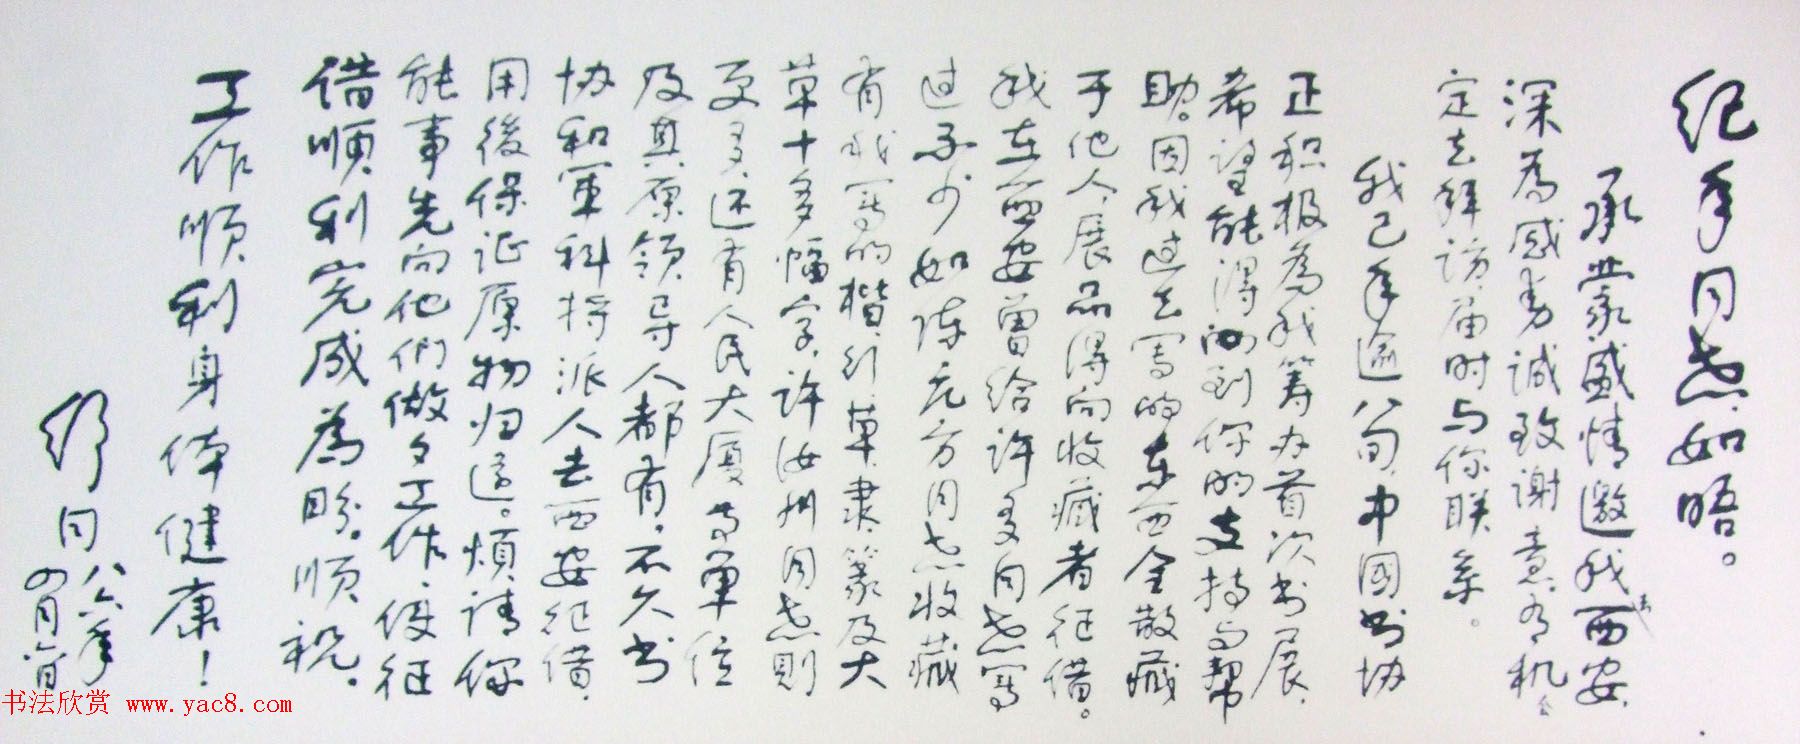 纪年同志如晤。
承蒙盛情邀我去西安，
深为感动，诚致谢意，有机会
定去拜访，届时与你联系。
我已年逾八旬，中国书协
正积极为我筹办首次书展，
希望能得到你的支持与帮
助。因我过去写的东西全散藏
于他人，展品得向收藏者征借。
我在西安曾给许多同志写
过不少，如陈元方同志收藏
有我写的楷、行、草、隶、篆及大
草十多幅字，许汝洲同志则
更多，还有人民大厦等单位
及其原领导人都有。不久书
协和军科将派人去西安征借，
用後保证原物归还。烦请你
能事先向他们做々工作，使征
借顺利完成为盼。顺祝
工作顺利身体健康！
舒同 八六年
四月 日
书法欣赏 www.yac8.com